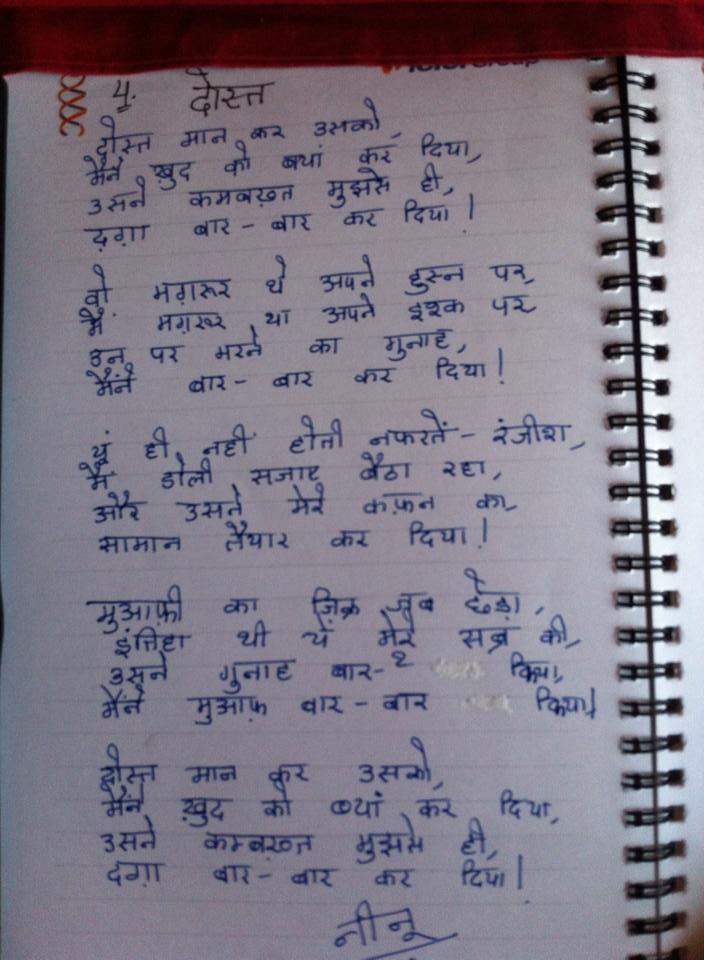 4. दोस्त
दोस्त मान कर उसको,
मैंने ख़ुद को बयां कर दिया,
उसने कमबख़्त मुझसे ही,
दग़ा बार-बार कर दिया!
वो मग़रूर थे अपने हुस्न पर,
मैं मग़रूर था अपने इश्क पर
उन पर मरने का गुनाह,
मैंने बार-बार कर दिया!
यूं ही नहीं होती नफरतें-रंजीश,
मैं डोली सजाए बैठा रहा,
और उसने मेरे कफ़न का,
सामान तैयार कर दिया!
मुआफ़ी का ज़िक्र जब छेड़ा,
इंतिहा थी ये मेरे सब्र की,
उसने गुनाह बार-२ किया,
मैंने मुआफ़ बार-बार किया!
दोस्त मान कर उसको,
मैंने ख़ुद को बयां कर दिया,
उसने कम्बख़्त मुझसे ही,
दग़ा बार-बार कर दिया!
नीनू